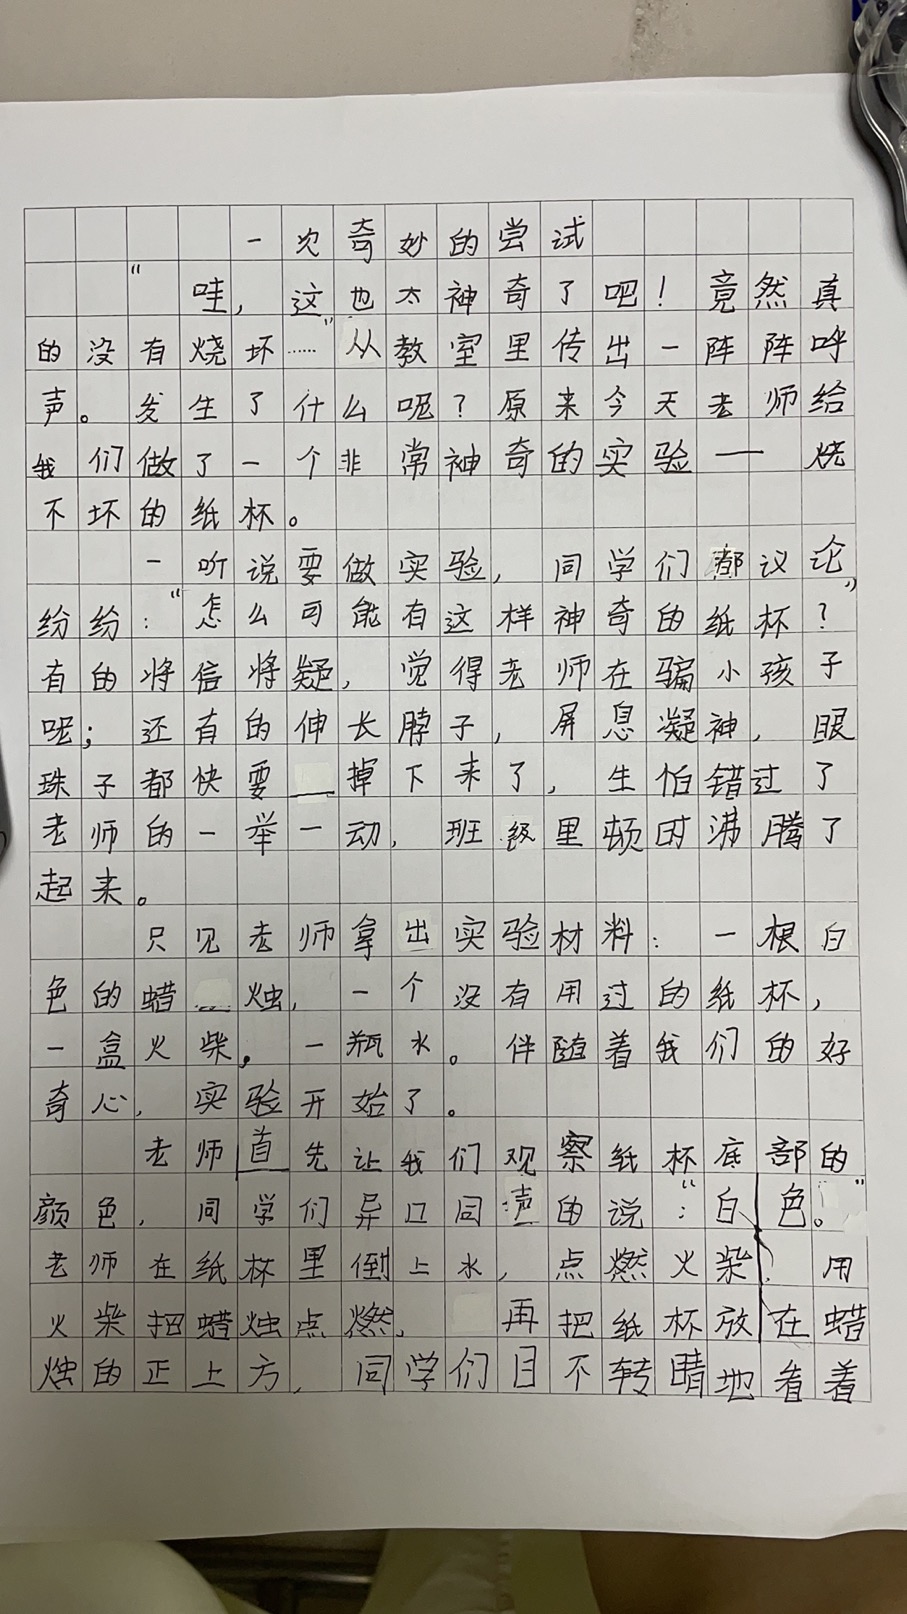 一次奇妙的尝试
“哇，这也太神奇了吧！竟然真
的没有烧坏……”从教室里传出一阵阵呼
声。发生了什么呢？原来今天老师给
我们做了一个非常神奇的实验——烧
不坏的纸杯。
一听说要做实验，同学们都议论
纷纷：“怎么可能有这样神奇的纸杯？”
有的将信将疑，觉得老师在骗小孩子
呢；还有的伸长脖子，屏息凝神，眼
珠子都快要掉下来了，生怕错过了
老师的一举一动，班级里顿时沸腾了
起来。
只见老师拿出实验材料：一根白
色的蜡烛，一个没有用过的纸杯，
一盒火柴，一瓶水。伴随着我们的好
奇心，实验开始了。
老师首先让我们观察纸杯底部的
颜色，同学们异口同声的说：“白色。”
老师在纸杯里倒上水，点燃火柴，用
火柴把蜡烛点燃，再把纸杯放在蜡
烛的正上方，同学们目不转睛地看着